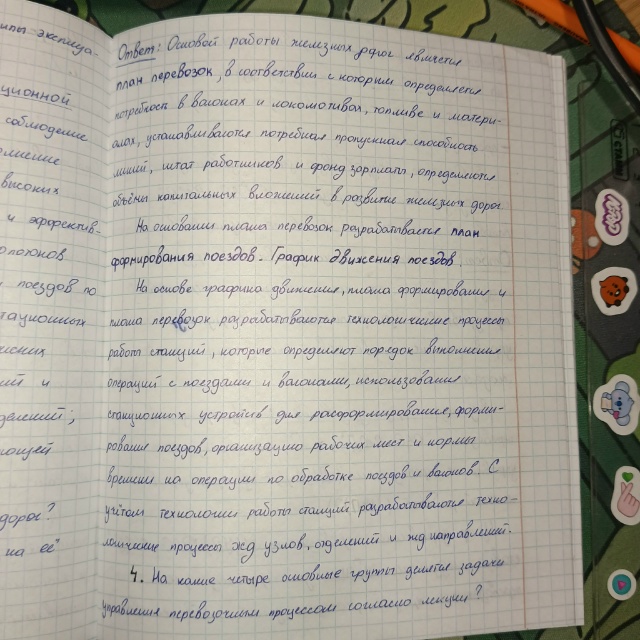 ипы эксплуа-
ционной
соблюдение
олнение
высоких
и эффектив-
поездов по
тационных
ий и
делений;
ющей
дорог?
на её
Ответ: Основой работы железных дорог является
план перевозок, в соответствии с которым определяется
потребность в вагонах и локомотивах, топливе и матери-
алах, устанавливаются потребная пропускная способность
линий, штат работников и фонд зарплаты, определяются
объёмы капитальных вложений в развитие железных дорог.
На основании плана перевозок разрабатывается план
формирования поездов. График движения поездов.
На основе графика движения, плана формирования и
плана перевозок разрабатываются технологические процессы
работы станций, которые определяют порядок выполнения
операций с поездами и вагонами, использования
станционных устройств для расформирования, форми-
рования поездов, организацию рабочих мест и нормы
времени на операции по обработке поездов и вагонов. С
учётом технологии работы станций разрабатываются техно-
логические процессы жд узлов, отделений и жд направлений.
4. На какие четыре основные группы делятся задачи
управления перевозочным процессом согласно лекции?